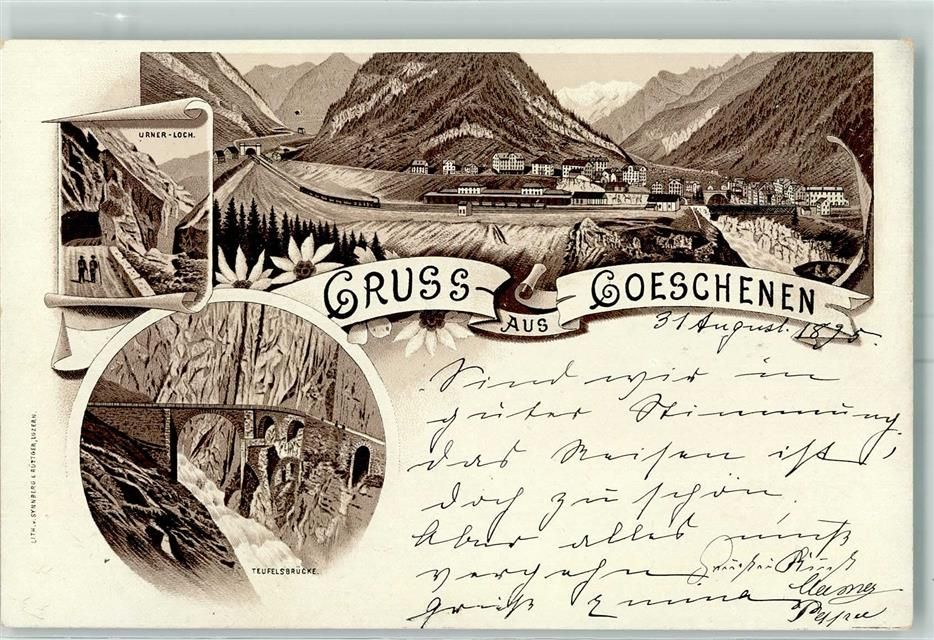 URNER-LOCH.
GRUSS
AUS
GOESCHENEN
31 August. 1895.
Sind wir in
guter Stimmung,
das Reisen ist
doch zu schön.
Aber alles muß
vergehn
Gruß Emma
TEUFELSBRÜCKE.
LITH. v. SYNNBERG & RÜTTGER, LUZERN.